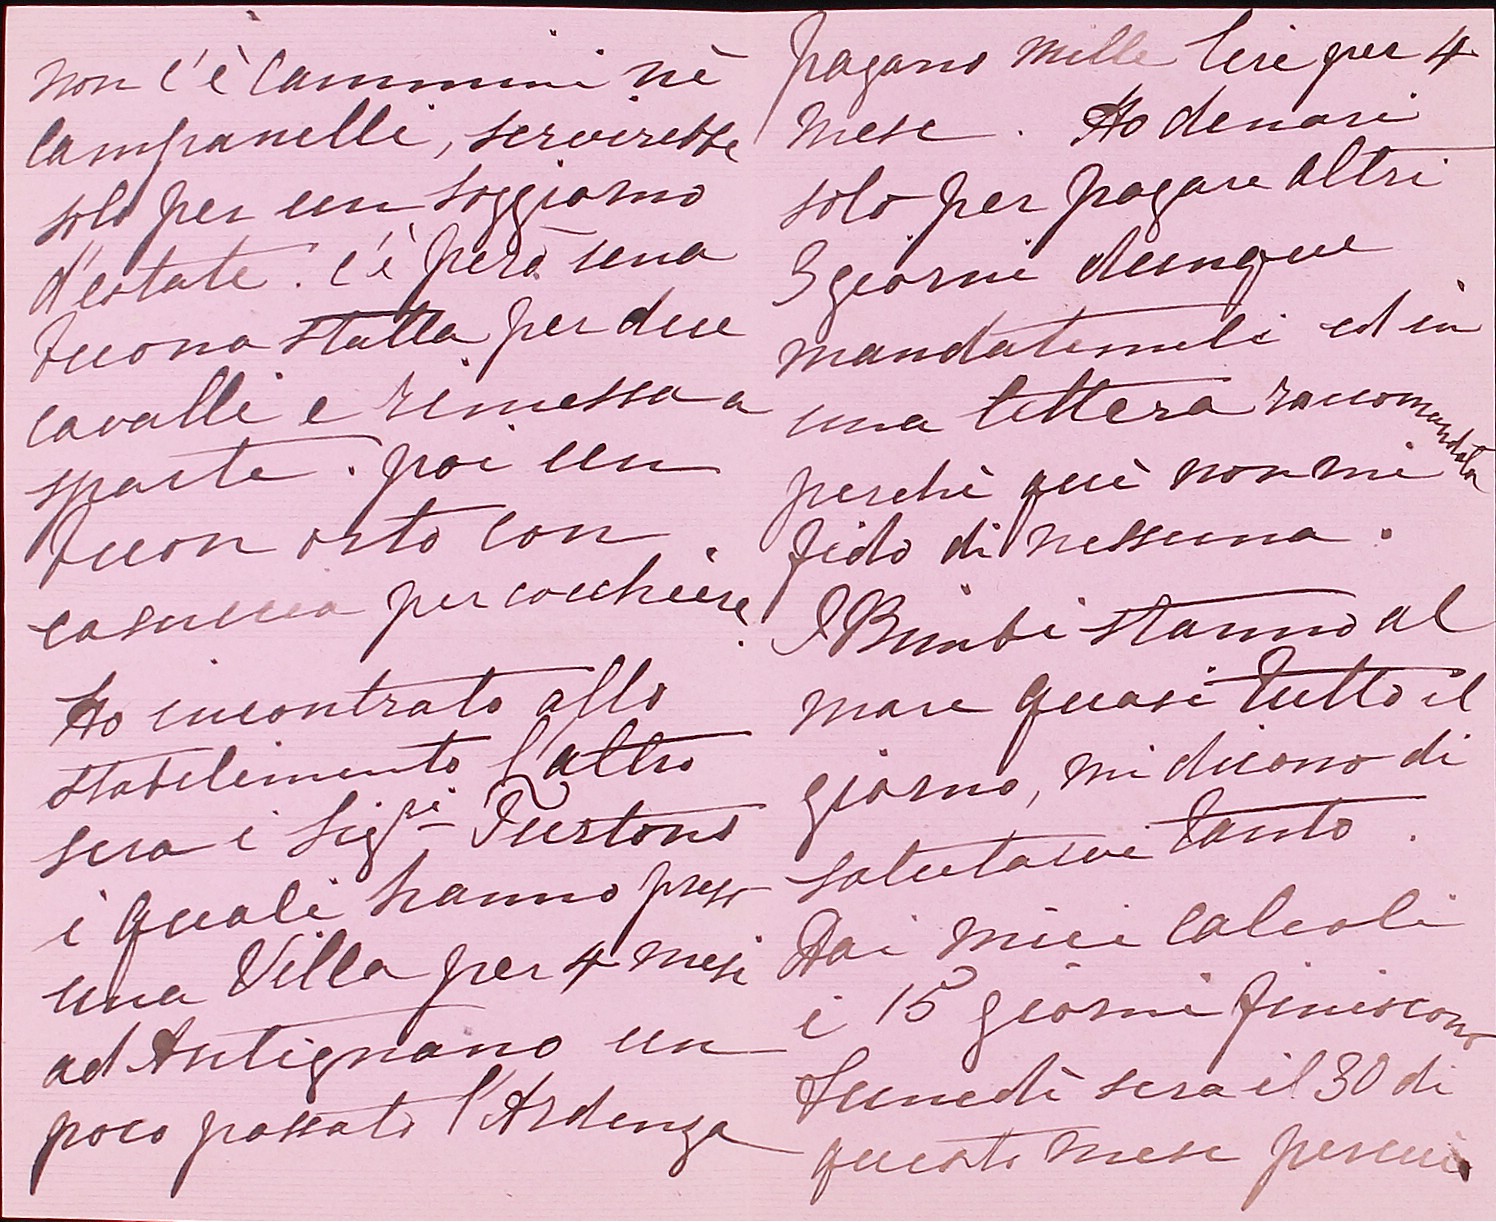 non c'è cammini nè
campanelli, servirebbe
solo per un soggiorno
d'estate. c'è però una
buona stalla per due
cavalli e rimessa a
sparte. poi un
buon orto con
casuccia per cocchiere.
Ho incontrato allo
stabilimento l'altro
sera i Sigri
i quali hanno preso
una Villa per 4 mesi
ad Antignano un
poco passato l'Ardenza
pagano mille lire per 4
mese. Ho denari
solo per pagare altri
3 giorni dunque
mandatemeli ed in
una lettera raccomandata
perchè quì non mi
fido di nessuna.
I Bimbi stanno al
mare quasi tutto il
giorno, mi dicono di
salutarvi tanto.
Dai miei calcoli
i 15 giorni finiscono
Lunedì sera il 30 di
questo mese perciò